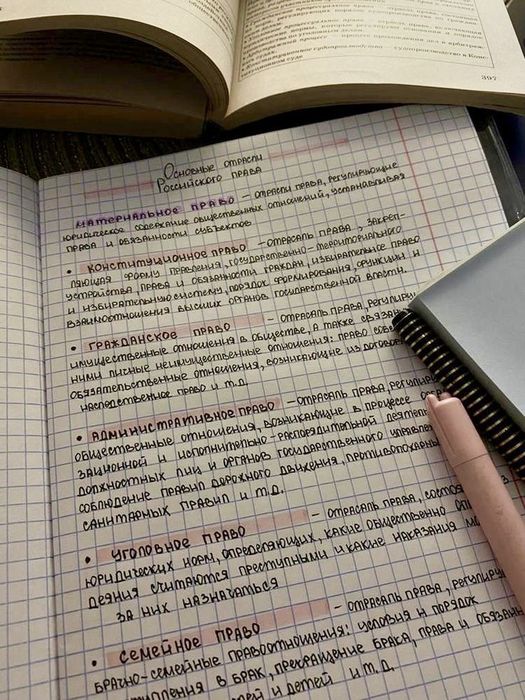 процессуальное право
судопроизводство в Конс-
ституционном суде
397
Основные отрасли
Российского права
Материальное право – отрасли права, регулирующие
юридическое содержание общественных отношений, устанавливая
права и обязанности субъектов
• Конституционное право – отрасаль права, закреп-
ляющая форму правления, государственно-территориального
устройства, права и обязанности граждан, избирательное право
и избирательную систему, порядок формирования, функции и
взаимоотношения высших органов государственной власти.
• Гражданское право – отрасаль права, регулиру
имущественные отношения в обществе, а также связан
ними лисные неимущественные отношения: право
обязательственные отношения, возникающие из догово
наследственное право и т.д.
• Административное право – отрасаль права, регулиру
общественные отношения, возникающие в процессе
зационной и исполнительно-распорядительной деятел
должностных лиц и органов государственного управле
соблюдение правил дорожного движения, противопожар
санитарных правил и т.д.
• Уголовное право – отрасаль права, состоя з
юридических норм, определяющих, какие общественно оп
деяния считаются преступными и какие наказания мо
за них назначаться
• Семейное право – отрасаль права, регулиру
брачно-семейные правоотношения: условия и порядок
ступления в брак, прекращение брака, права и обязан
ей и детей и т.д.